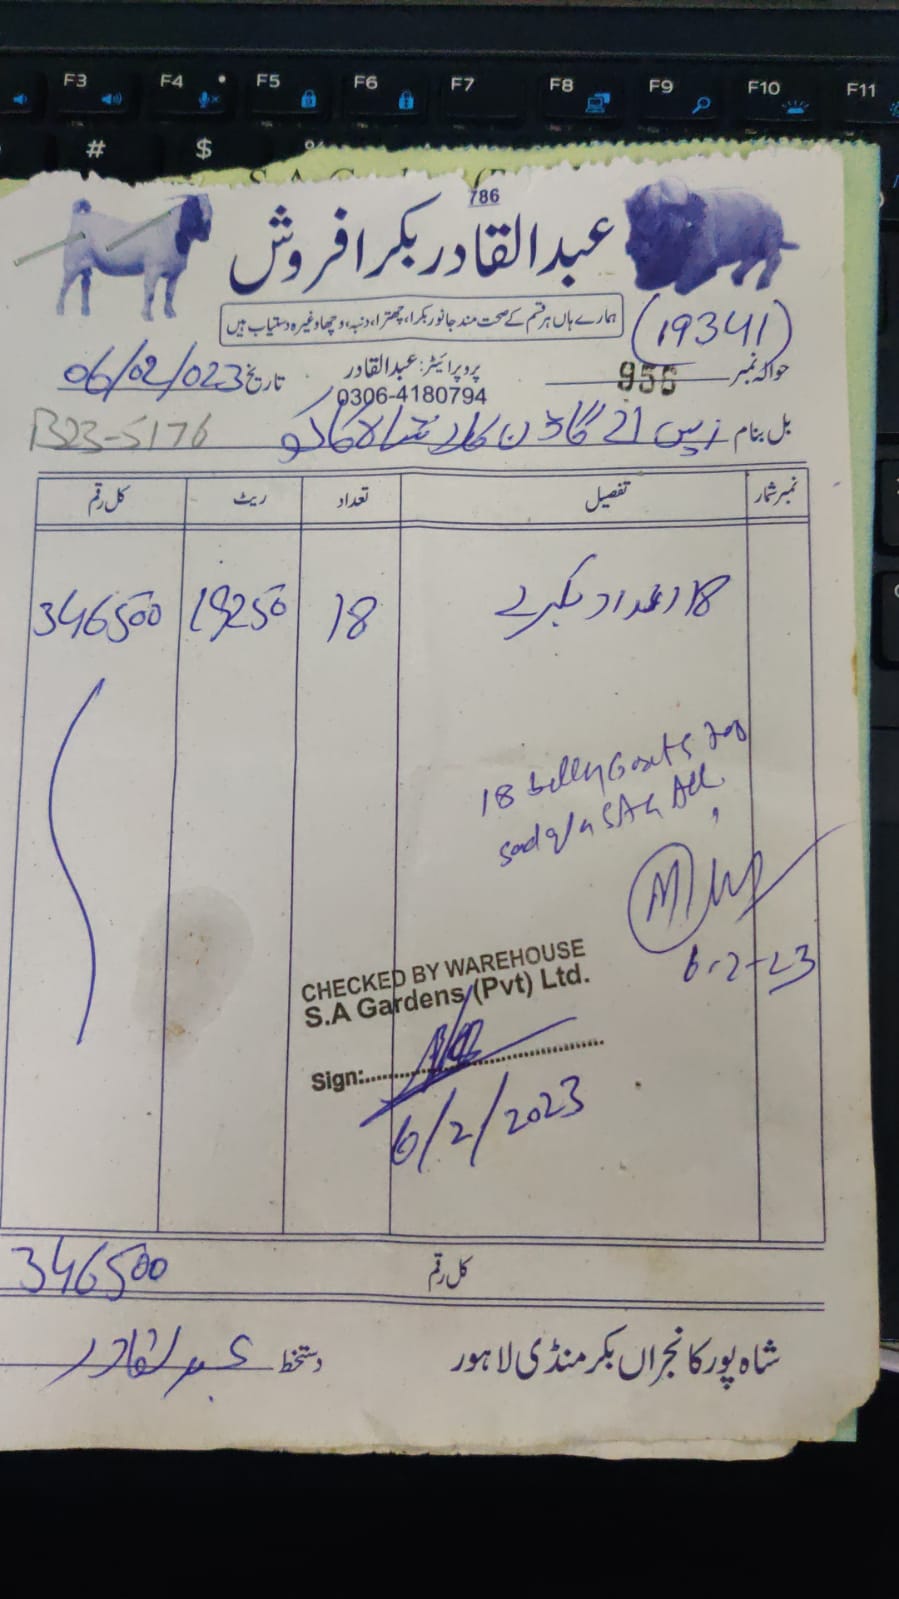 F3 F4 F5 F6 F7 F8 F9 F10 F11
# $ %
786
عبدالقادر بکرا فروش
ہمارے ہاں ہر قسم کے صحت مند جانور بکرا، چھترا، دنبہ، وچھا وغیرہ دستیاب ہیں
(19341)
حوالہ نمبر 956
پروپرائیٹر: عبدالقادر
تاریخ 06/02/023
0306-4180794
بل بنام
B23-5176
نمبر شمار تفصیل تعداد ریٹ کل رقم
18 اعداد بکرے 18 19250 346500
18 billy Goats for
M
6-2-23
CHECKED BY WAREHOUSE
S.A Gardens (Pvt) Ltd.
Sign:
6/2/2023
کل رقم 346500
دستخط عبدالقادر
شاہ پور کانجراں بکر منڈی لاہور